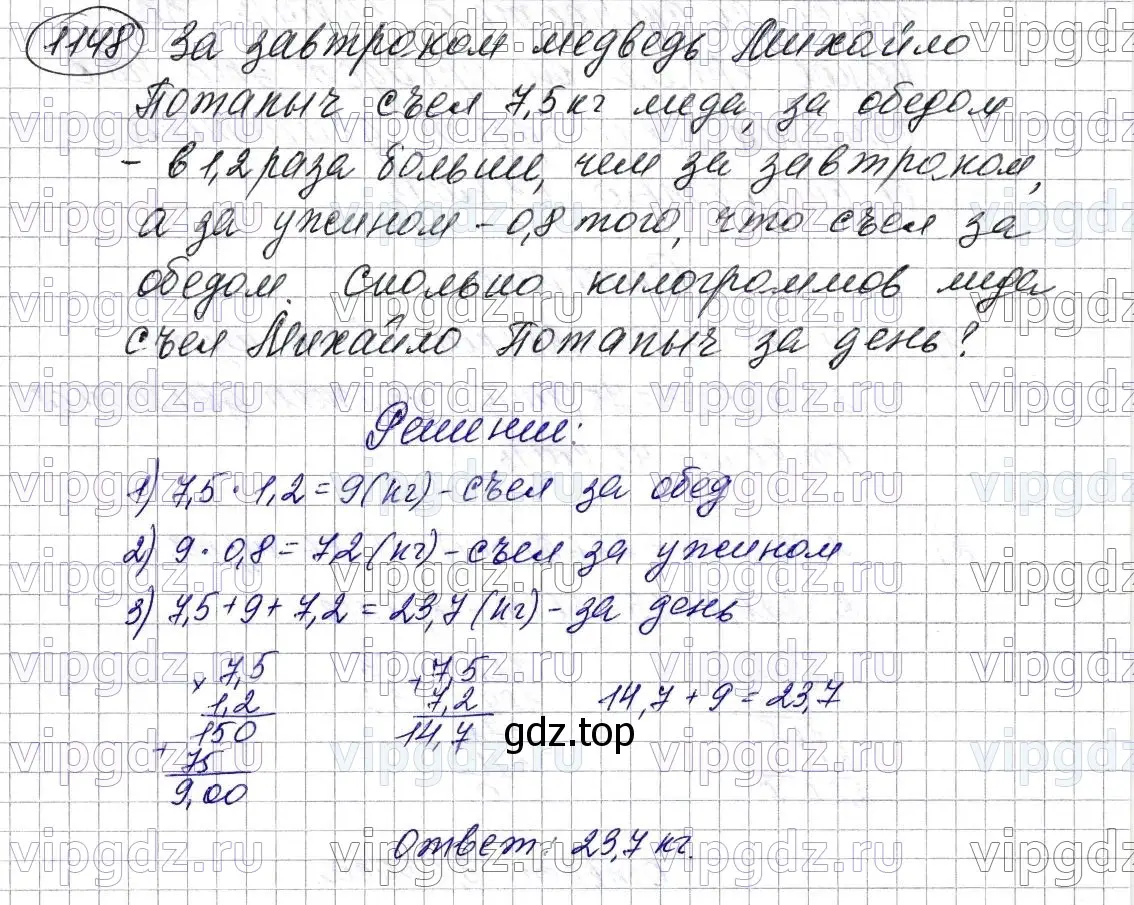 1148 За завтраком медведь Михайло
Потапыч съел 7,5 кг меда, за обедом
- в 1,2 раза больше, чем за завтраком,
а за ужином - 0,8 того, что съел за
обедом. Сколько килограммов меда
съел Михайло Потапыч за день?
Решение:
1) 7,5 · 1,2 = 9 (кг) - съел за обед
2) 9 · 0,8 = 7,2 (кг) - съел за ужином
3) 7,5 + 9 + 7,2 = 23,7 (кг) - за день
× 7,5
1,2
150
+ 75
9,00
+ 7,5
7,2
14,7
14,7 + 9 = 23,7
gdz.top
Ответ: 23,7 кг.
vipgdz.ru